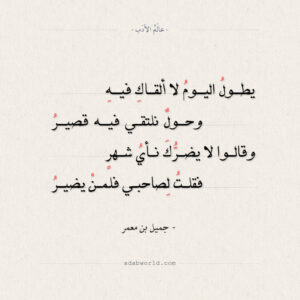 - عالم الأدب -
يطـولُ اليـومُ لا ألقـاكِ فيـهِ
وحـولٌ نلتقـي فيـه قصيـرُ
وقالـوا لا يضـرُّكَ نـأيُ شـهر
فقلـتُ لِصاحبـي فلَمـنْ يضيـرُ
- جميل بن معمر
adabworld.com